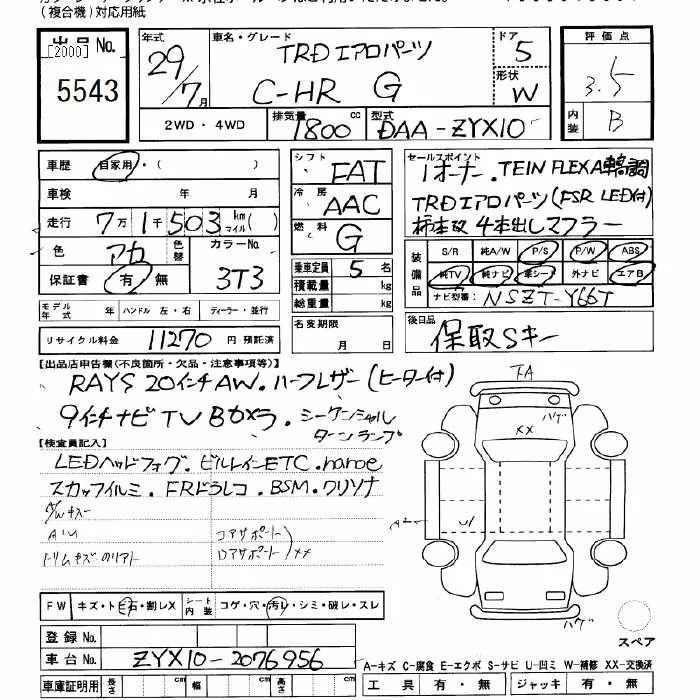 (複合機)対応用紙
出品No.
[2000]
5543
年式
29/7月
車名・グレード
TRDエアロパーツ
C-HR G
ドア
5
形状
W
2WD・4WD
排気量
1800 cc
型式
DAA-ZYX10
評価点
3.5
内装
B
車歴 自家用・( )
車検 年 月
走行 7万1千503 km マイル( )
色 アカ 色替 カラーNo. 3T3
保証書 有・無
シフト FAT
冷房 AAC
燃料 G
乗車定員 5 名
積載量 kg
総重量 kg
セールスポイント
1オーナー.TEIN FLEX A車高調
TRDエアロパーツ(FSR LED付)
柿本改 4本出しマフラー
装備品
S/R 純A/W P/S P/W ABS
純TV 純ナビ 革シート 外ナビ エアB
ナビ型番: NSZT-Y66T
モデル年式 年 ハンドル 左・右 ディーラー・並行
リサイクル料金 11270 円 預託済
名変期限 月 日
後日品
保取Sキー
【出品店申告欄(不良箇所・欠品・注意事項等)】
RAYS 20インチAW.ハーフレザー(ヒーター付)
9インチナビTV Bカメラ.シーケンシャル
ターンランプ
【検査員記入】
LEDヘッドフォグ.ビルトインETC.nanoe
スカッフイルミ.FRドラレコ.BSM.クリソナ
A/Wキズ
トリムキズ
コアサポート
ロアサポート XX
FA
ハゲ
XX
A2
U1
ハゲ
スペア
FW キズ・トビ石・割レX シート内装 コゲ・穴・汚レ・シミ・破レ・スレ
登録No.
車台No. ZYX10-2076956
A-キズ C-腐食 E-エクボ S-サビ U-凹ミ W-補修 XX-交換済
車庫証明用 長さ cm 幅 cm 高さ cm
工具 有・無 ジャッキ 有・無